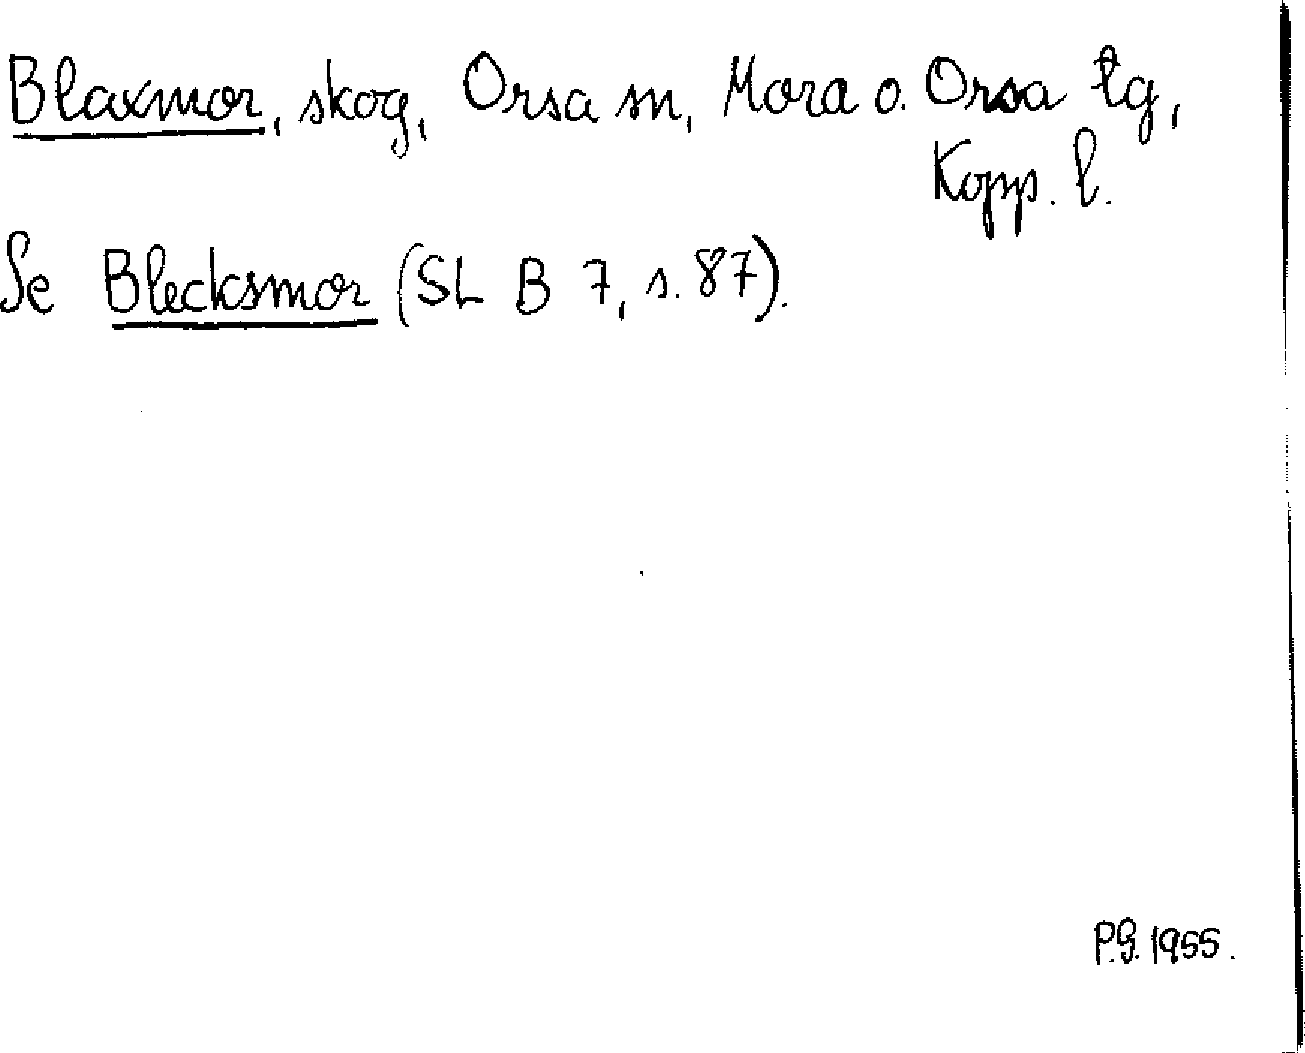 Blaxmor, skog, Orsa sn, Mora o. Orsa tg,
Kopp. l.
Se Blecksmor (SL B 7, s. 87).
P.G. 1955.